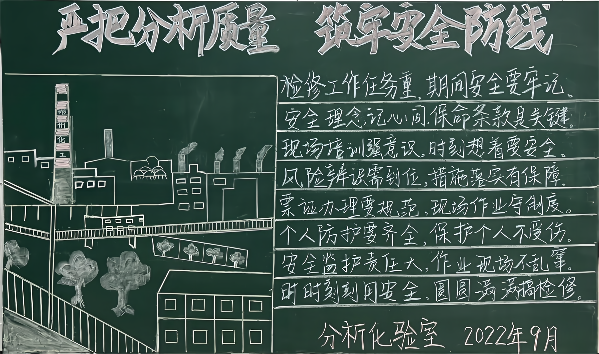 严把分析质量 筑牢安全防线
检修工作任务重,期间安全要牢记。
安全理念记心间,保命条款是关键。
现场培训强意识,时刻想着要安全。
风险辨识需到位,措施落实有保障。
票证办理要规范,现场作业守制度。
个人防护要齐全,保护个人不受伤。
安全监护责任大,作业现场不乱窜。
时时刻刻用安全,圆圆满满搞检修。
分析化验室 2022年9月